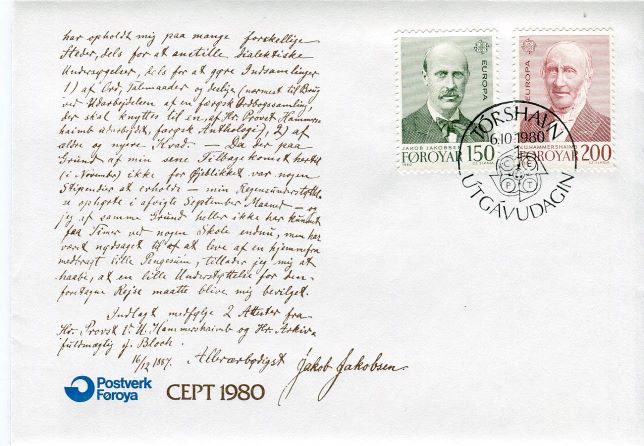 har opholdt mig paa mange forskellige
Steder, dels for at anstille dialektiske
Undersøgelser, dels for at gøre Indsamlinger
1) af Ord, Talemaader og deslige (nærmest til Brug
ved Udarbejdelsen af en færøsk Ordbogssamling,
der skal knyttes til en, af Hr. Provst Hammers-
haimb udarbejdet, færøsk Anthologi), 2) af
ældre og nyere Kvad. — Da der paa
Grund af min sene Tilbagekomst hertil
(i Novembr) ikke for Øjeblikket var nogen
Stipendier at erholde — min Regensunderstøttelse
ophørte i afvigte September Maaned — og
jeg af samme Grund heller ikke har kunnet
faa Timer ved nogen Skole endnu, men har
været nødsaget til at leve af en hjemmefra
medbragt lille Pengesum, tillader jeg mig at
haabe, at en lille Understøttelse for den
foretagne Rejse maatte blive mig bevilget.
Indlagt medfølge 2 Attester fra
Hr. Provst V. U. Hammershaimb og Hr. Arkiv-
fuldmægtig J. Bloch.
16/12 1887. Allerærbødigst Jakob Jakobsen.
EUROPA
JAKOB JAKOBSEN
FØROYAR 150
1980
EUROPA
V.U. HAMMERSHAIMB
FØROYAR 200
TÓRSHAVN
6.10 1980
CEPT
ÚTGÁVUDAGIN
Postverk
Føroya
CEPT 1980